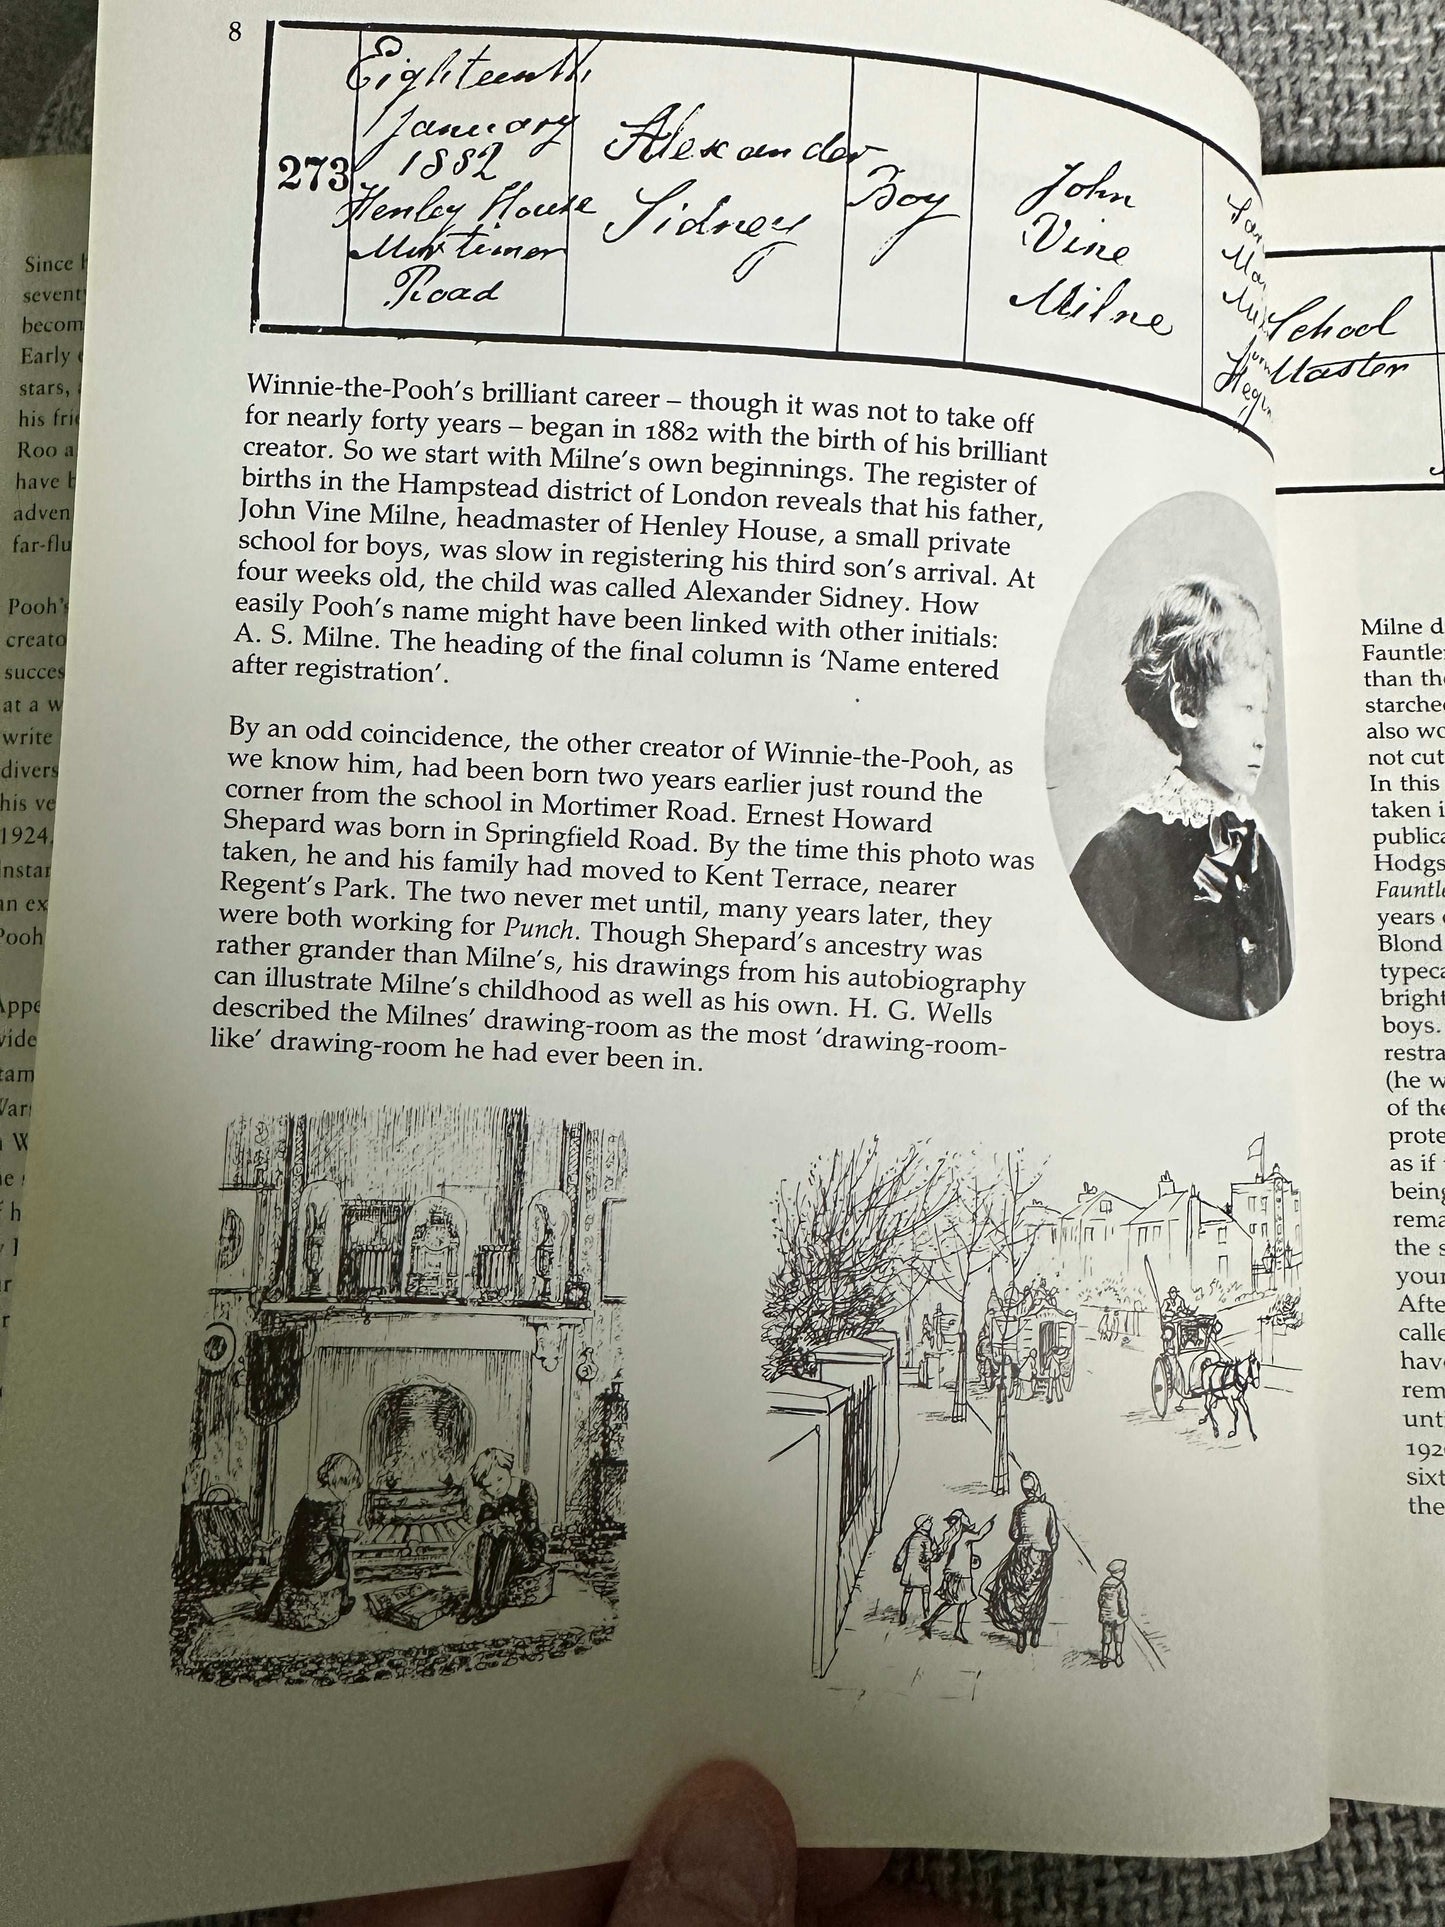 8
273
Eighteenth
January
1882
Henley House
Mortimer
Road
Alexander
Sidney
Boy
John
Vine
Milne
School
Master
Winnie-the-Pooh's brilliant career – though it was not to take off
for nearly forty years – began in 1882 with the birth of his brilliant
creator. So we start with Milne's own beginnings. The register of
births in the Hampstead district of London reveals that his father,
John Vine Milne, headmaster of Henley House, a small private
school for boys, was slow in registering his third son's arrival. At
four weeks old, the child was called Alexander Sidney. How
easily Pooh's name might have been linked with other initials:
A. S. Milne. The heading of the final column is 'Name entered
after registration'.
By an odd coincidence, the other creator of Winnie-the-Pooh, as
we know him, had been born two years earlier just round the
corner from the school in Mortimer Road. Ernest Howard
Shepard was born in Springfield Road. By the time this photo was
taken, he and his family had moved to Kent Terrace, nearer
Regent's Park. The two never met until, many years later, they
were both working for Punch. Though Shepard's ancestry was
rather grander than Milne's, his drawings from his autobiography
can illustrate Milne's childhood as well as his own. H. G. Wells
described the Milnes' drawing-room as the most 'drawing-room-
like' drawing-room he had ever been in.
Since
sevent
becom
Early
stars,
his
Roo a
have
adven
far-flu
Pooh's
creato
succes
at a w
write
divers
his ve
1924,
an ex
Pooh
Milne d
Fauntle
than th
starche
also wo
not cut
In this
taken i
publica
Hodgs
Fauntle
years
Blond
typeca
bright
boys.
restra
(he w
of the
prote
as if
being
rema
the s
your
Afte
calle
have
rem
unti
192
sixt
the